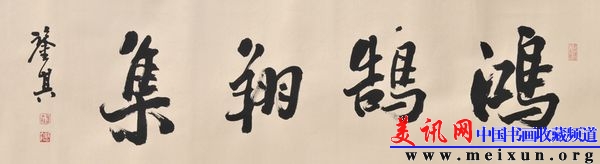 鴻鵠翔集
肇其
美讯网 中国书画收藏频道
www.meixun.org